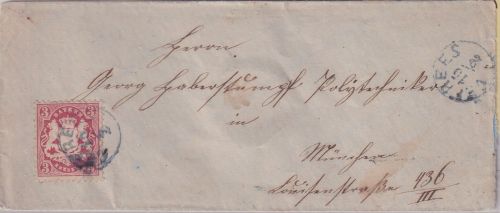 Herrn
Georg Haberstumpf Polytechniker
in
München
Louisenstraße 436/III
BAYERN
3 3
3 KREUZER 3
REES